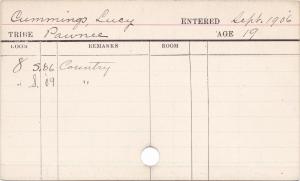 Cummings, Lucy ENTERED Sept. 1906
TRIBE Pawnee AGE 19
LOCUS REMARKS ROOM
8 S. 06 Country
" S. 09 "